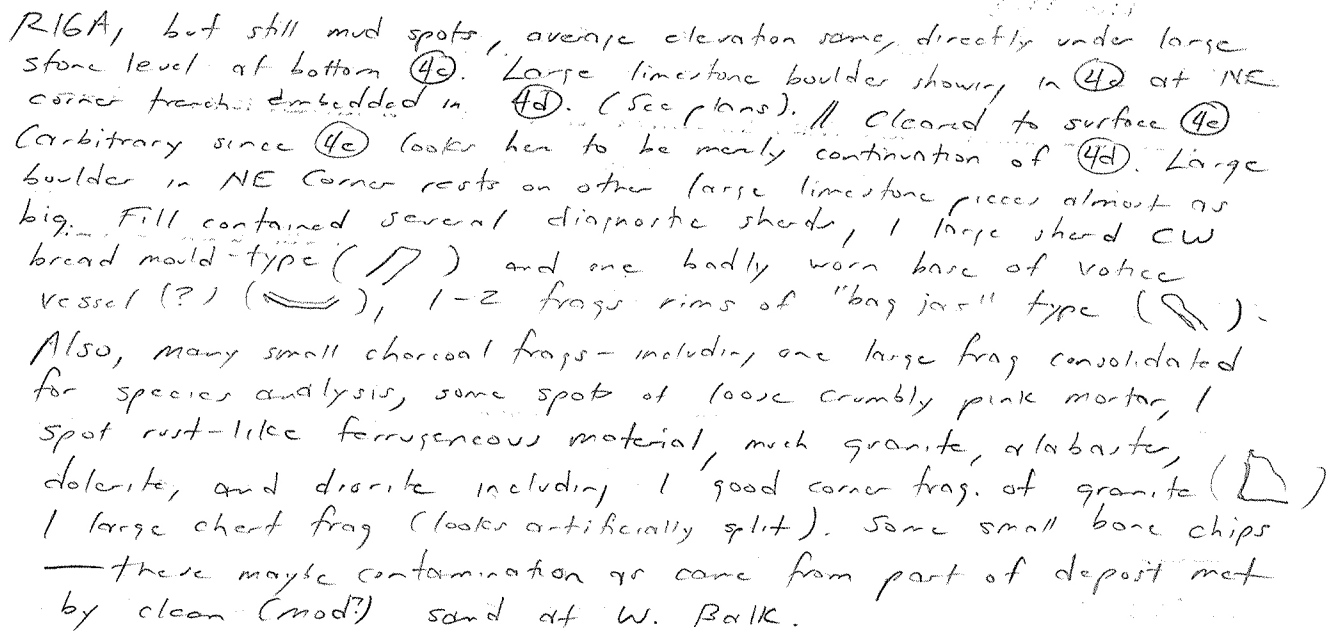 R16A, but still mud spots, average elevation same, directly under large
stone level at bottom (4c). Large limestone boulder showing in (4c) at NE
corner trench: embedded in (4d). (See plans). // Cleared to surface (4e)
(arbitrary since (4e) looks here to be merely continuation of (4d). Large
boulder in NE Corner rests on other large limestone pieces almost as
big. Fill contained several diagnostic sherds, 1 large sherd CW
bread mould-type ( ) and one badly worn base of votice
vessel (?) ( ), 1-2 frags rims of "bag jar" type ( ).
Also, many small charcoal frags - including one large frag consolidated
for species analysis, some spots of loose crumbly pink mortar, 1
spot rust-like ferrugeneous material, much granite, alabaster,
dolerite, and diorite including 1 good corner frag. of granite ( )
1 large chert frag (looks artificially split). Some small bone chips
— these maybe contamination as came from part of deposit met
by clean (mod?) sand at W. Balk.